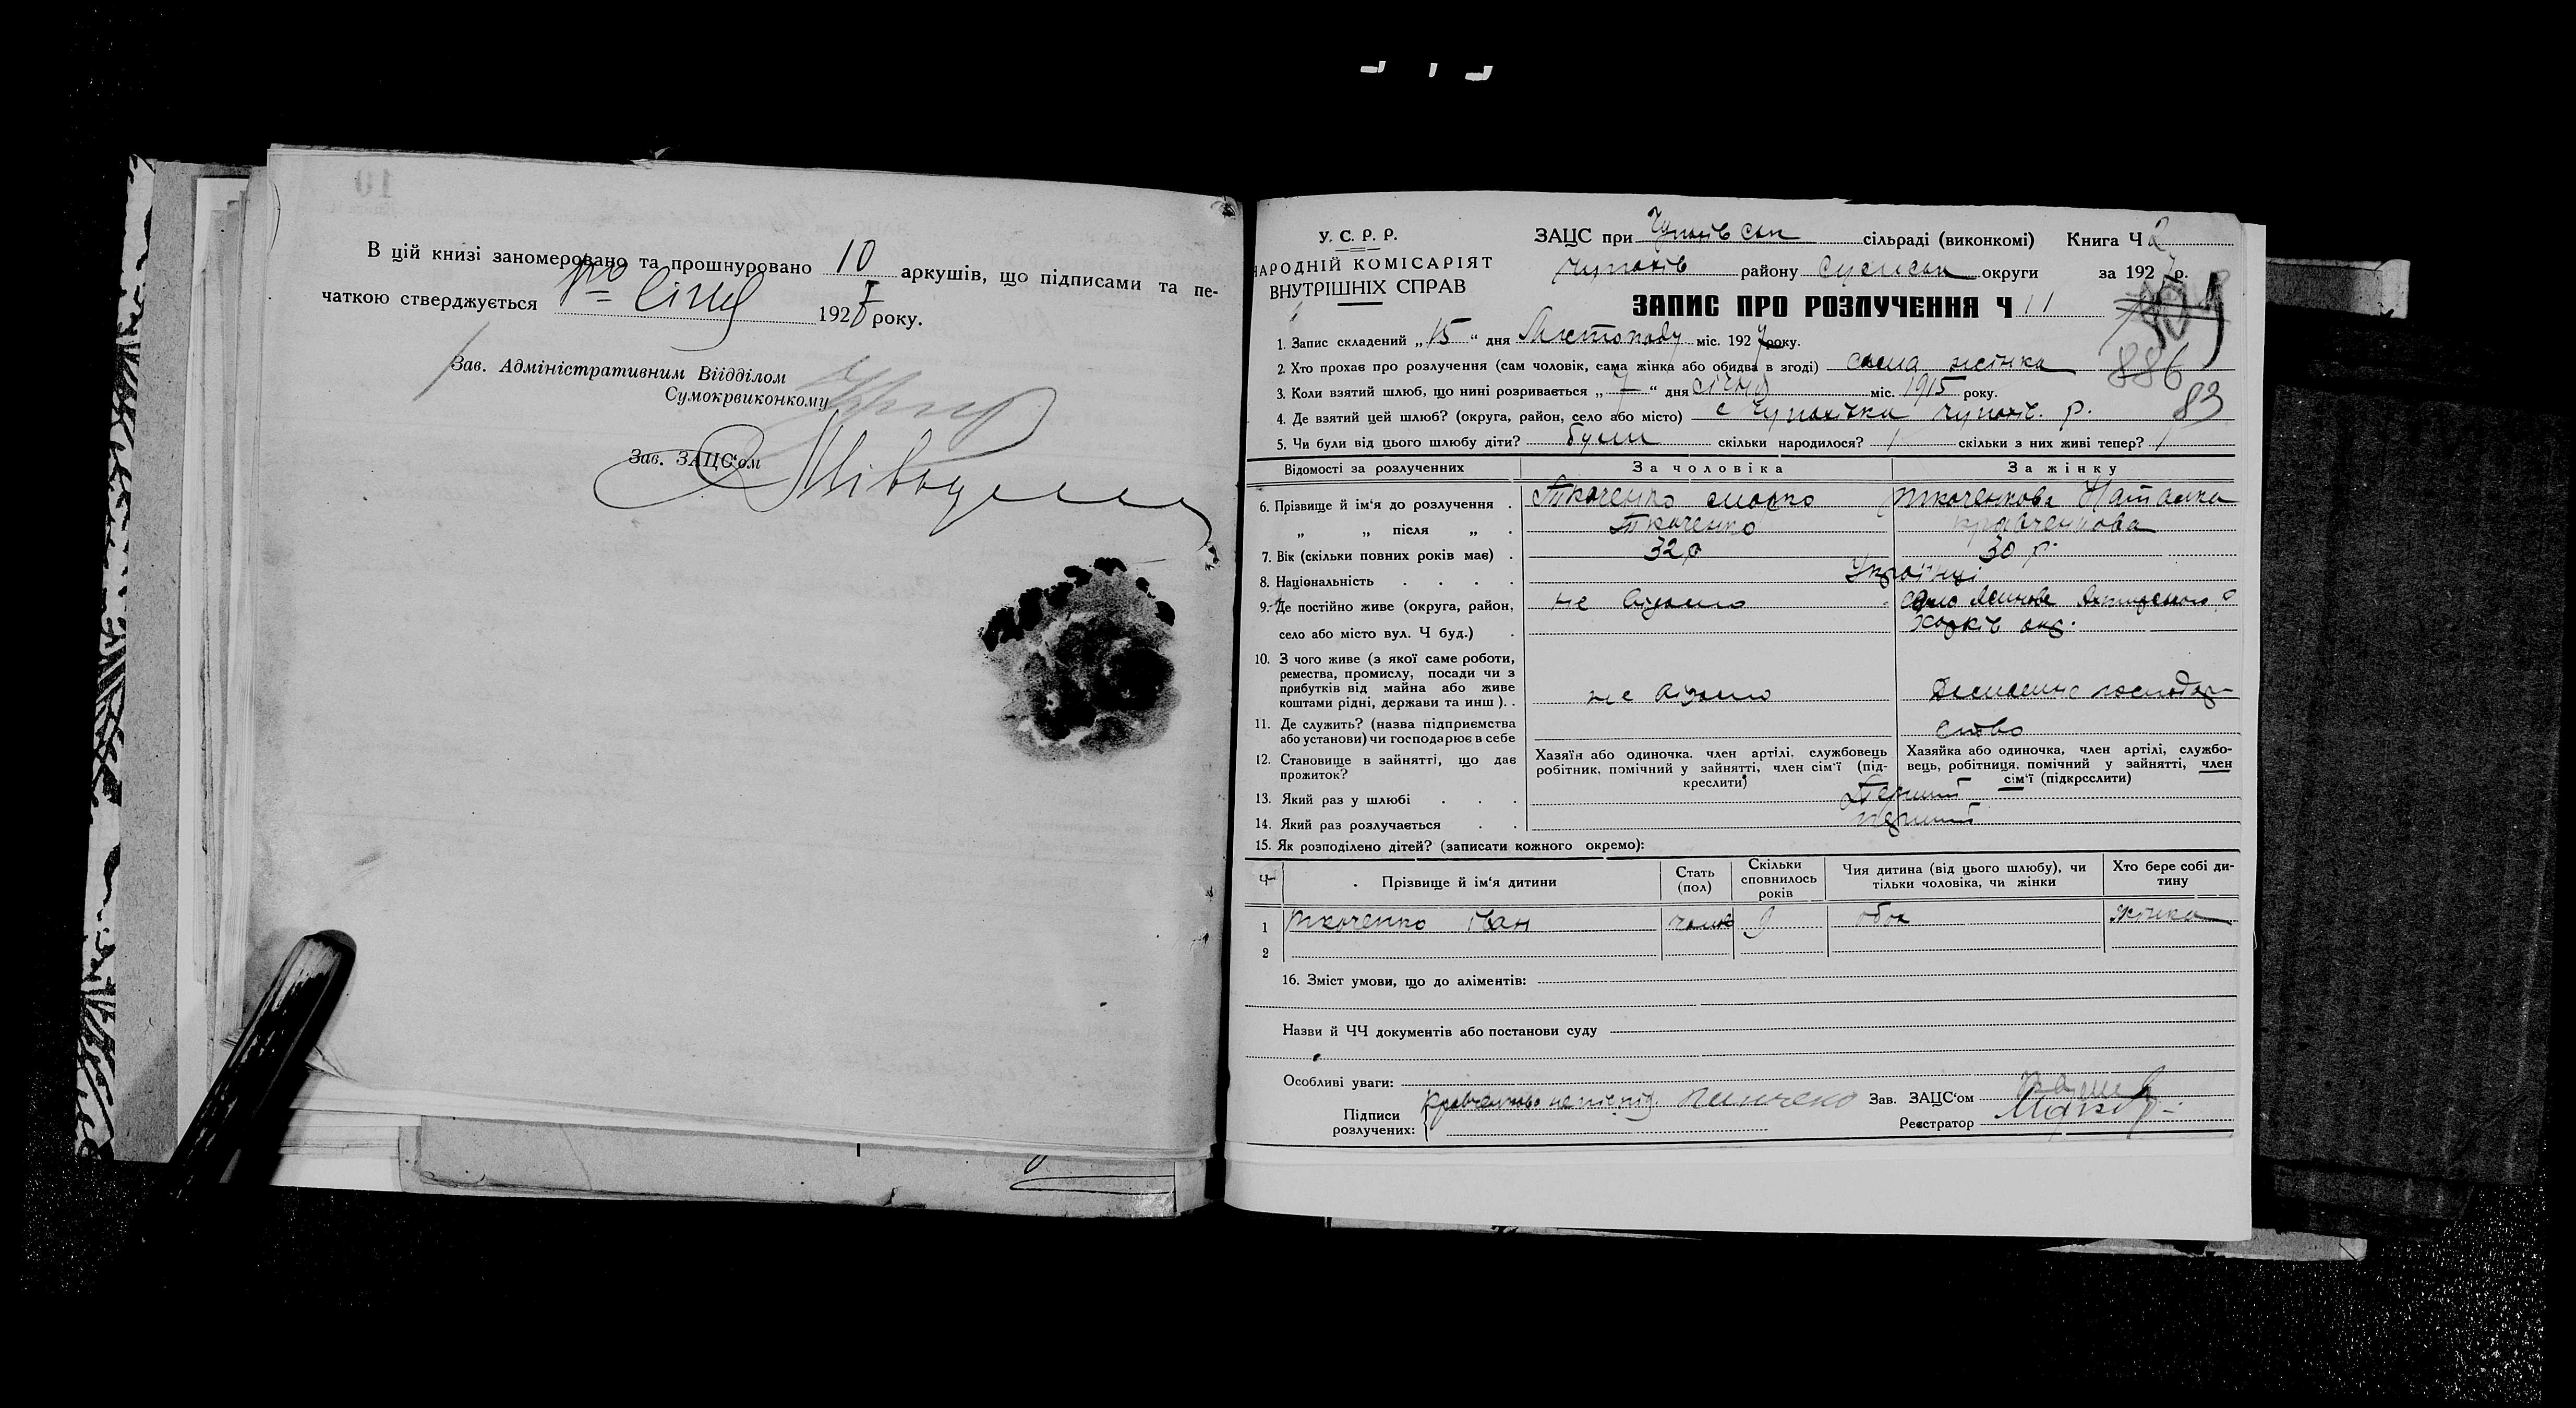 В цій книзі заномеровано та прошнуровано 10 аркушів, що підписами та пе-
чаткою стверджується 192 року.
Зав. Адміністративним Віідділом
Сумокрвиконкому
Зав. ЗАЦС‘ом
У. С. Р. Р.
НАРОДНІЙ КОМІСАРІЯТ
ВНУТРІШНІХ СПРАВ
ЗАЦС при сільраді (виконкомі) Книга Ч 2
району округи за 1927 р.
ЗАПИС ПРО РОЗЛУЧЕННЯ Ч 11
886
83
1. Запис складений „ 15 “ дня Листопаду міс. 1927 року.
2. Хто прохає про розлучення (сам чоловік, сама жінка або обидва в згоді) сама жінка
3. Коли взятий шлюб, що нині розривається „ 7 “ дня січня міс. 1915 року.
4. Де взятий цей шлюб? (округа, район, село або місто) с Чупахівка Чупахів. р.
5. Чи були від цього шлюбу діти? були скільки народилося? 1 скільки з них живі тепер? 1
Відомості за розлученних За чоловіка За жінку
6. Прізвище й ім‘я до розлучення . Ткаченко Ткаченкова Наталка
„ „ після „ . Ткаченко Кравченкова
7. Вік (скільки повних років має) . 32 р 30 р.
8. Національність . . . . Українці
9. Де постійно живе (округа, район, не відомо село
село або місто вул. Ч буд.) . Харків окр.
10. З чого живе (з якої саме роботи,
ремества, промислу, посади чи з
прибутків від майна або живе
коштами рідні, держави та инш). . не відомо господар-
11. Де служить? (назва підприємства
або установи) чи господарює в себе ство
12. Становище в зайнятті, що дає
прожиток?
Хазяїн або одиночка. член артілі. службовець
робітник, помічний у зайнятті, член сім‘ї (під-
креслити)
Хазяйка або одиночка, член артілі, службо-
вець, робітниця. помічний у зайнятті, член
сім‘ї (підкрєслити)
13. Який раз у шлюбі . . . Перший
14. Який раз розлучається . . перший
15. Як розподілено дітей? (записати кожного окремо):
Ч Прізвище й ім‘я дитини Стать (пол) Скільки сповнилось років Чия дитина (від цього шлюбу), чи тільки чоловіка, чи жінки Хто бере собі ди- тину
1 Ткаченко Іван 9 обох жінка
2
16. Зміст умови, що до аліментів:
Назви й ЧЧ документів або постанови суду
Особливі уваги:
Підписи
розлучених: Зав. ЗАЦС‘ом
Реєстратор